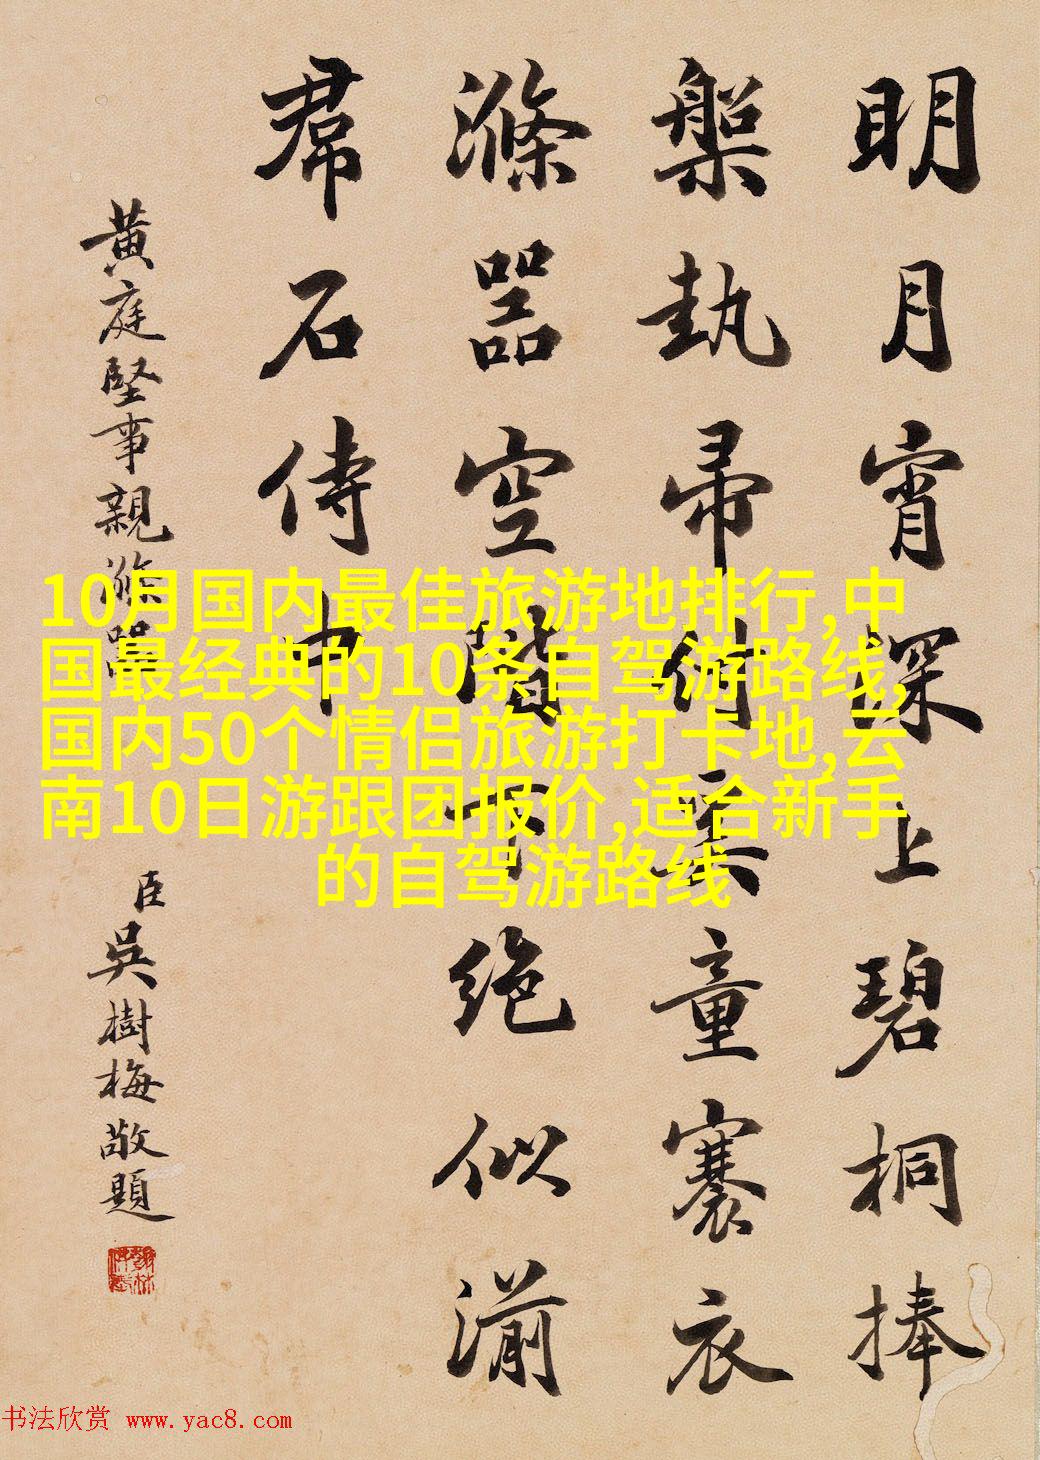 明月宵深上碧桐捧
槃執帚付奚童褰衣
滌器空階下絕似湔
帬石侍中
黃庭堅事親滌器
臣吳樹梅敬題
10月国内最佳旅游地排行,中
国最经典的10条自驾游路线,
国内50个情侣旅游打卡地,云
南10日游跟团报价,适合新手
的自驾游路线
书法欣赏 www.yac8.com